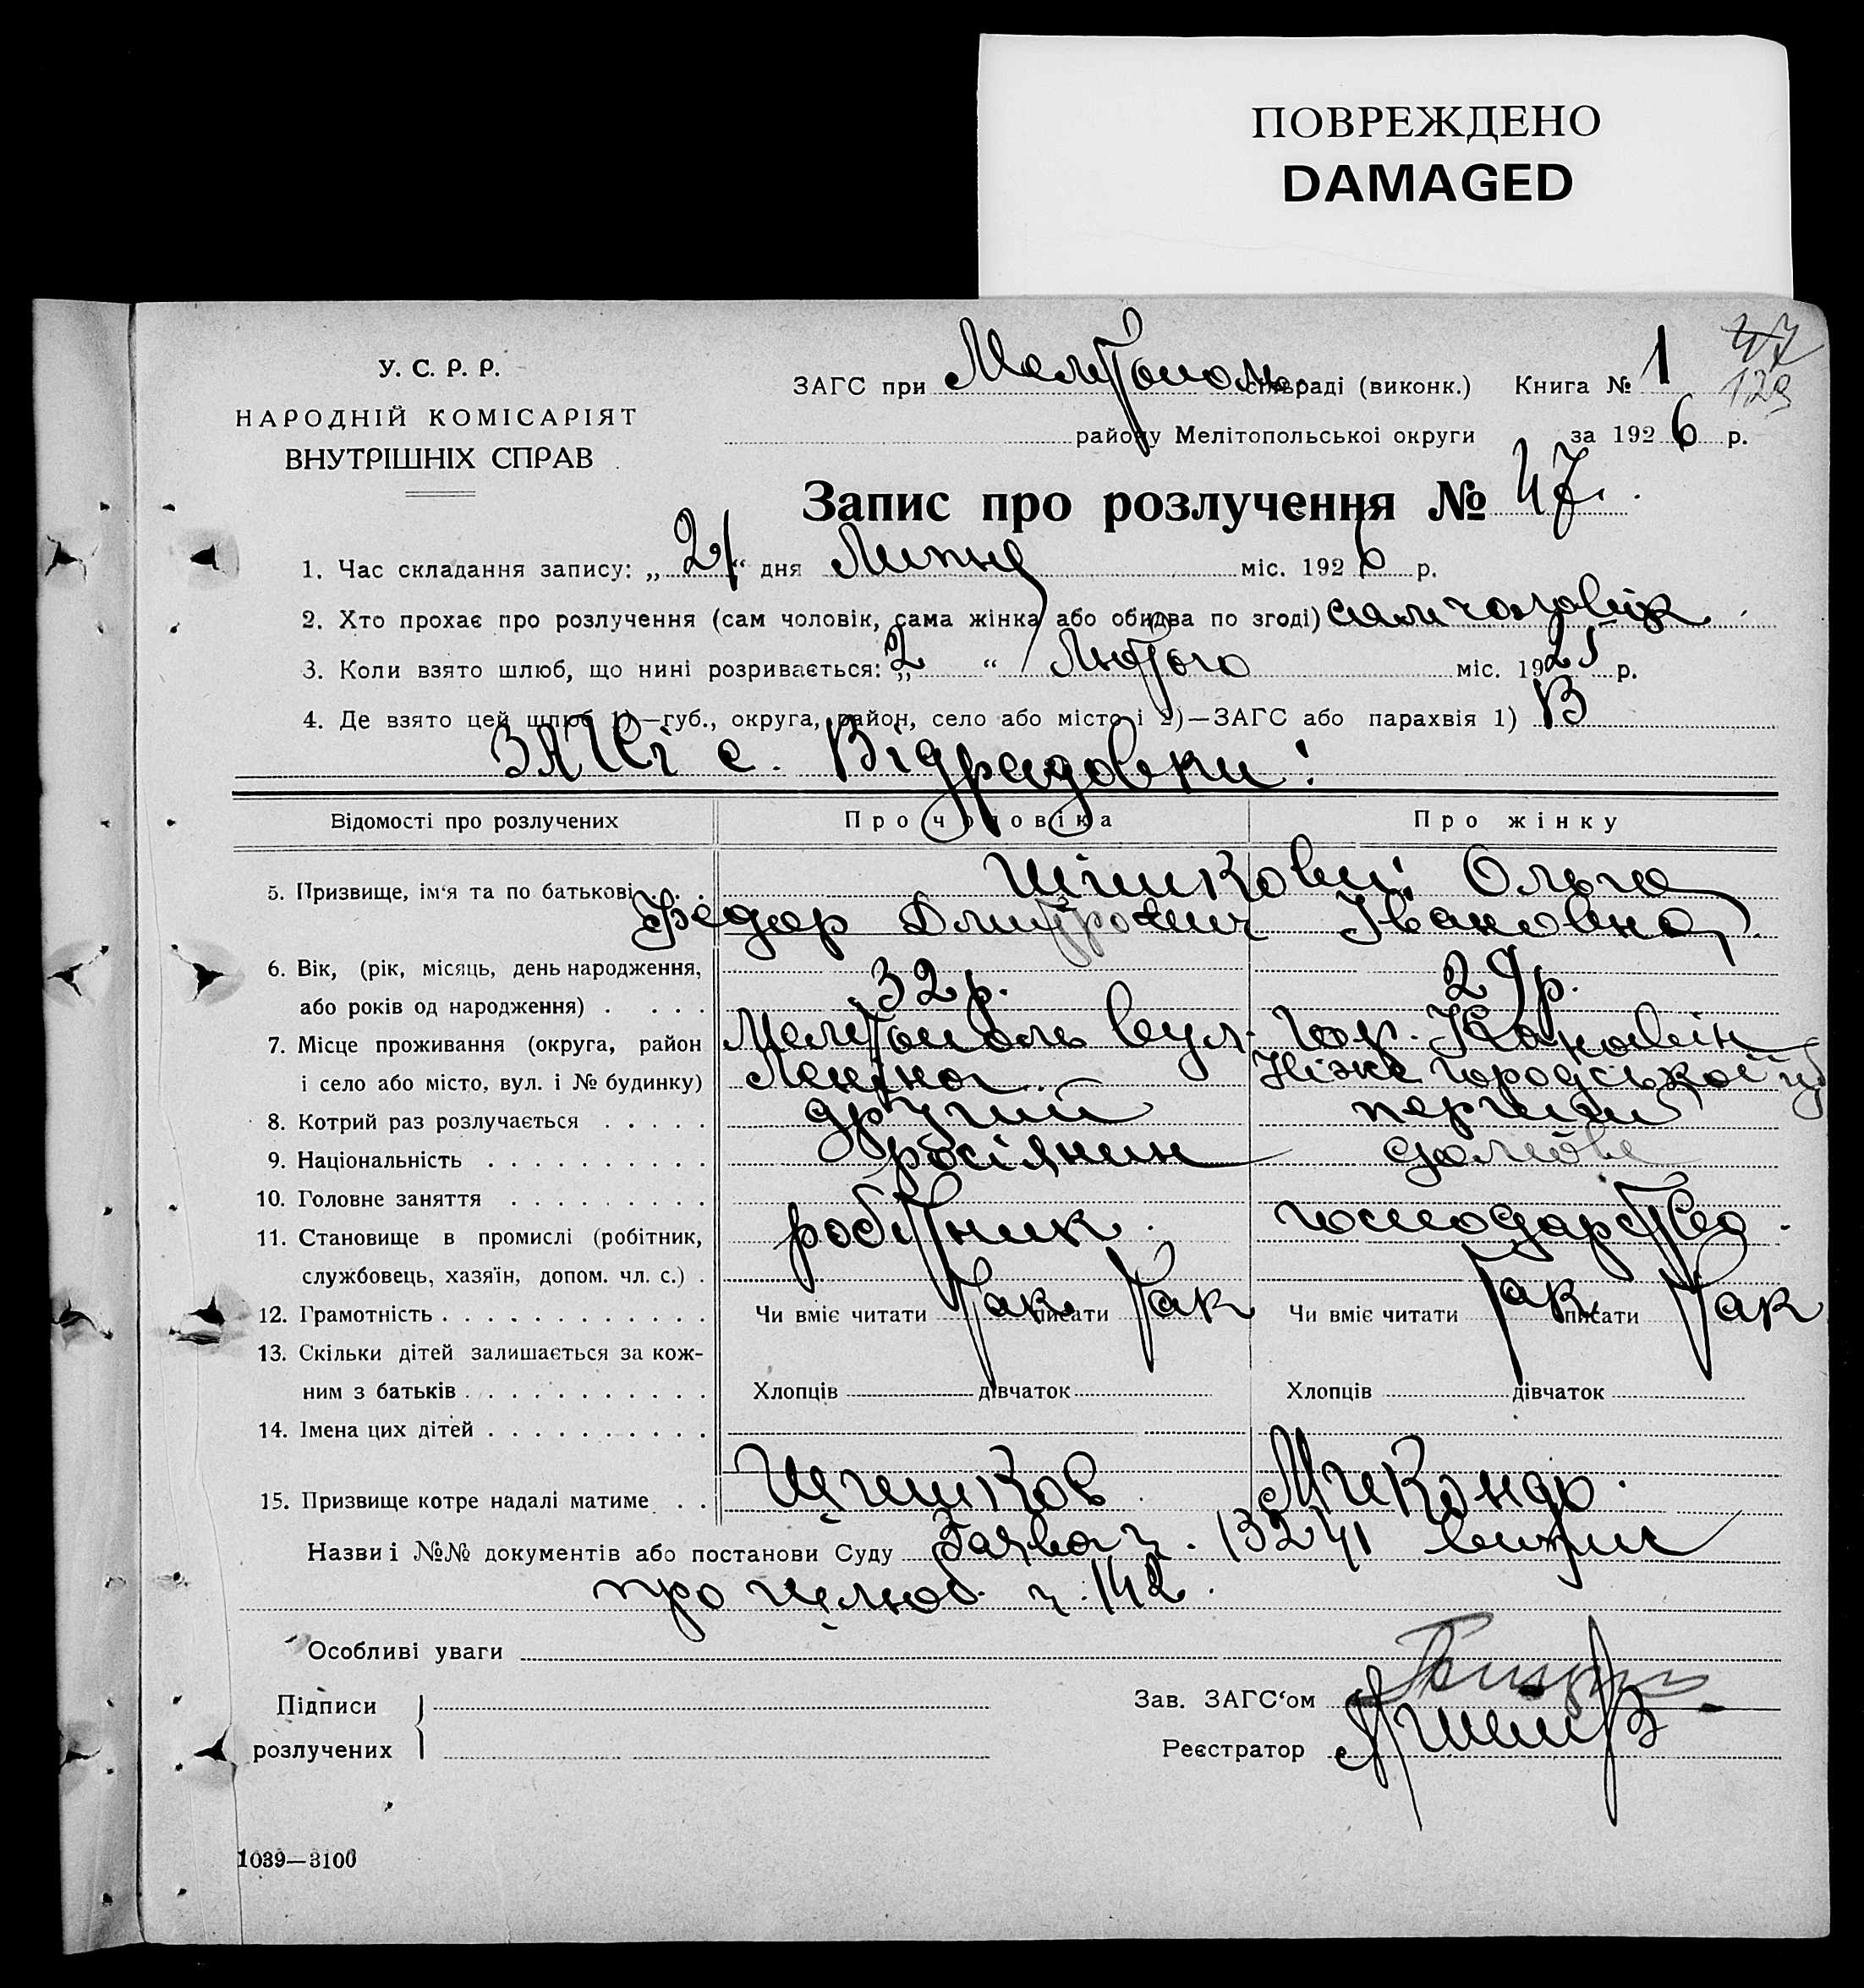 ПОВРЕЖДЕНО
DAMAGED
47
129
У. С. Р. Р.
НАРОДНІЙ КОМІСАРІЯТ
ВНУТРІШНІХ СПРАВ
ЗАГС при Мелітополь сільраді (виконк.) Книга № 1
району Мелітопольської округи за 1926 р.
Запис про розлучення № 47.
1. Час складання запису: „21“ дня Липня міс. 1926 р.
2. Хто прохає про розлучення (сам чоловік, сама жінка або обидва по згоді) сам чоловік
3. Коли взято шлюб, що нині розривається: „2“ Лютого міс. 1925 р.
4. Де взято цей шлюб 1)—губ., округа, район, село або місто і 2)—ЗАГС або парахвія 1) В
ЗАГСі с. Відрадовки
Відомості про розлучених Про чоловіка Про жінку
5. Призвище, ім'я та по батькові Ольга
Федор Дмитрович Івановна
6. Вік, (рік, місяць, день народження,
або років од народження) 32 р. 29 р.
7. Місце проживання (округа, район Мелітополь вул.
і село або місто, вул. і № будинку) Леніна
8. Котрий раз розлучається другий перший
9. Національність росіянин
10. Головне заняття
11. Становище в промислі (робітник, робітник. господарство.
службовець, хазяїн, допом. чл. с.)
12. Грамотність Чи вміє читати так писати так Чи вміє читати так писати так
13. Скільки дітей залишається за кож-
ним з батьків Хлопців дівчаток Хлопців дівчаток
14. Імена цих дітей
15. Призвище котре надалі матиме
Назви і №№ документів або постанови Суду Заява ч. 13241 витяг
про шлюб ч. 142.
Особливі уваги
Підписи
розлучених
Зав. ЗАГС'ом
Реєстратор
1039—3100